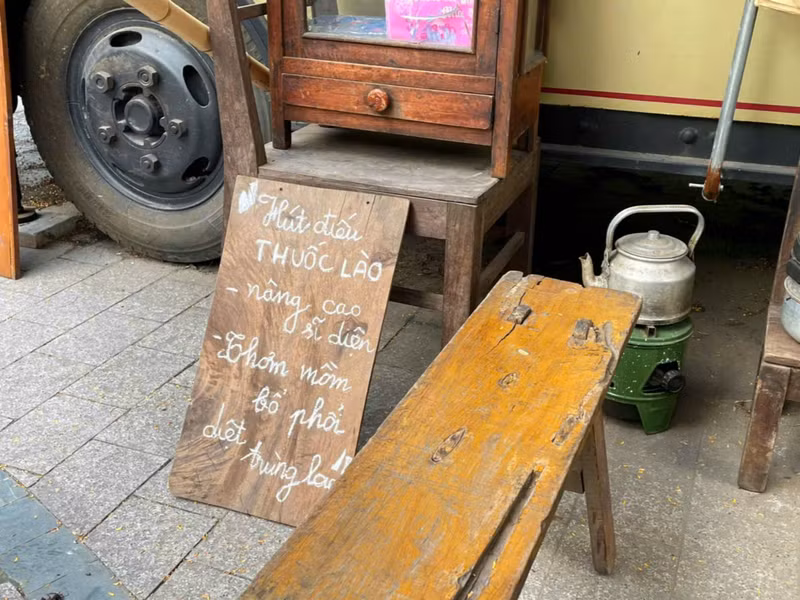 Hút điếu
THUỐC LÀO
- nâng cao
sĩ diện
- Thơm mồm
bổ phổi
diệt trùng lao